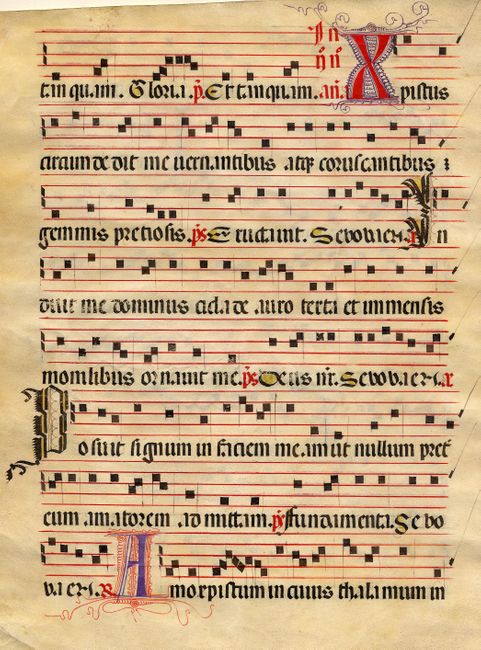 tanquam. Gloria. p̄. Et tanquam. an̄. Xpistus
circundedit me uernantibus atq; coruscantibus
gemmis pretiosis. ps Eructauit. Seuouaeu. a In
duit me dominus ciclade auro texta et immensis
monilibus ornauit me. ps Deus nr̄. Seuouaeu. a
Posuit signum in faciem meam ut nullum pret̄
eum amatorem admittam. ps ffundamenta. Seuo
uaeu. R Amorpistum in cuius thalamum in